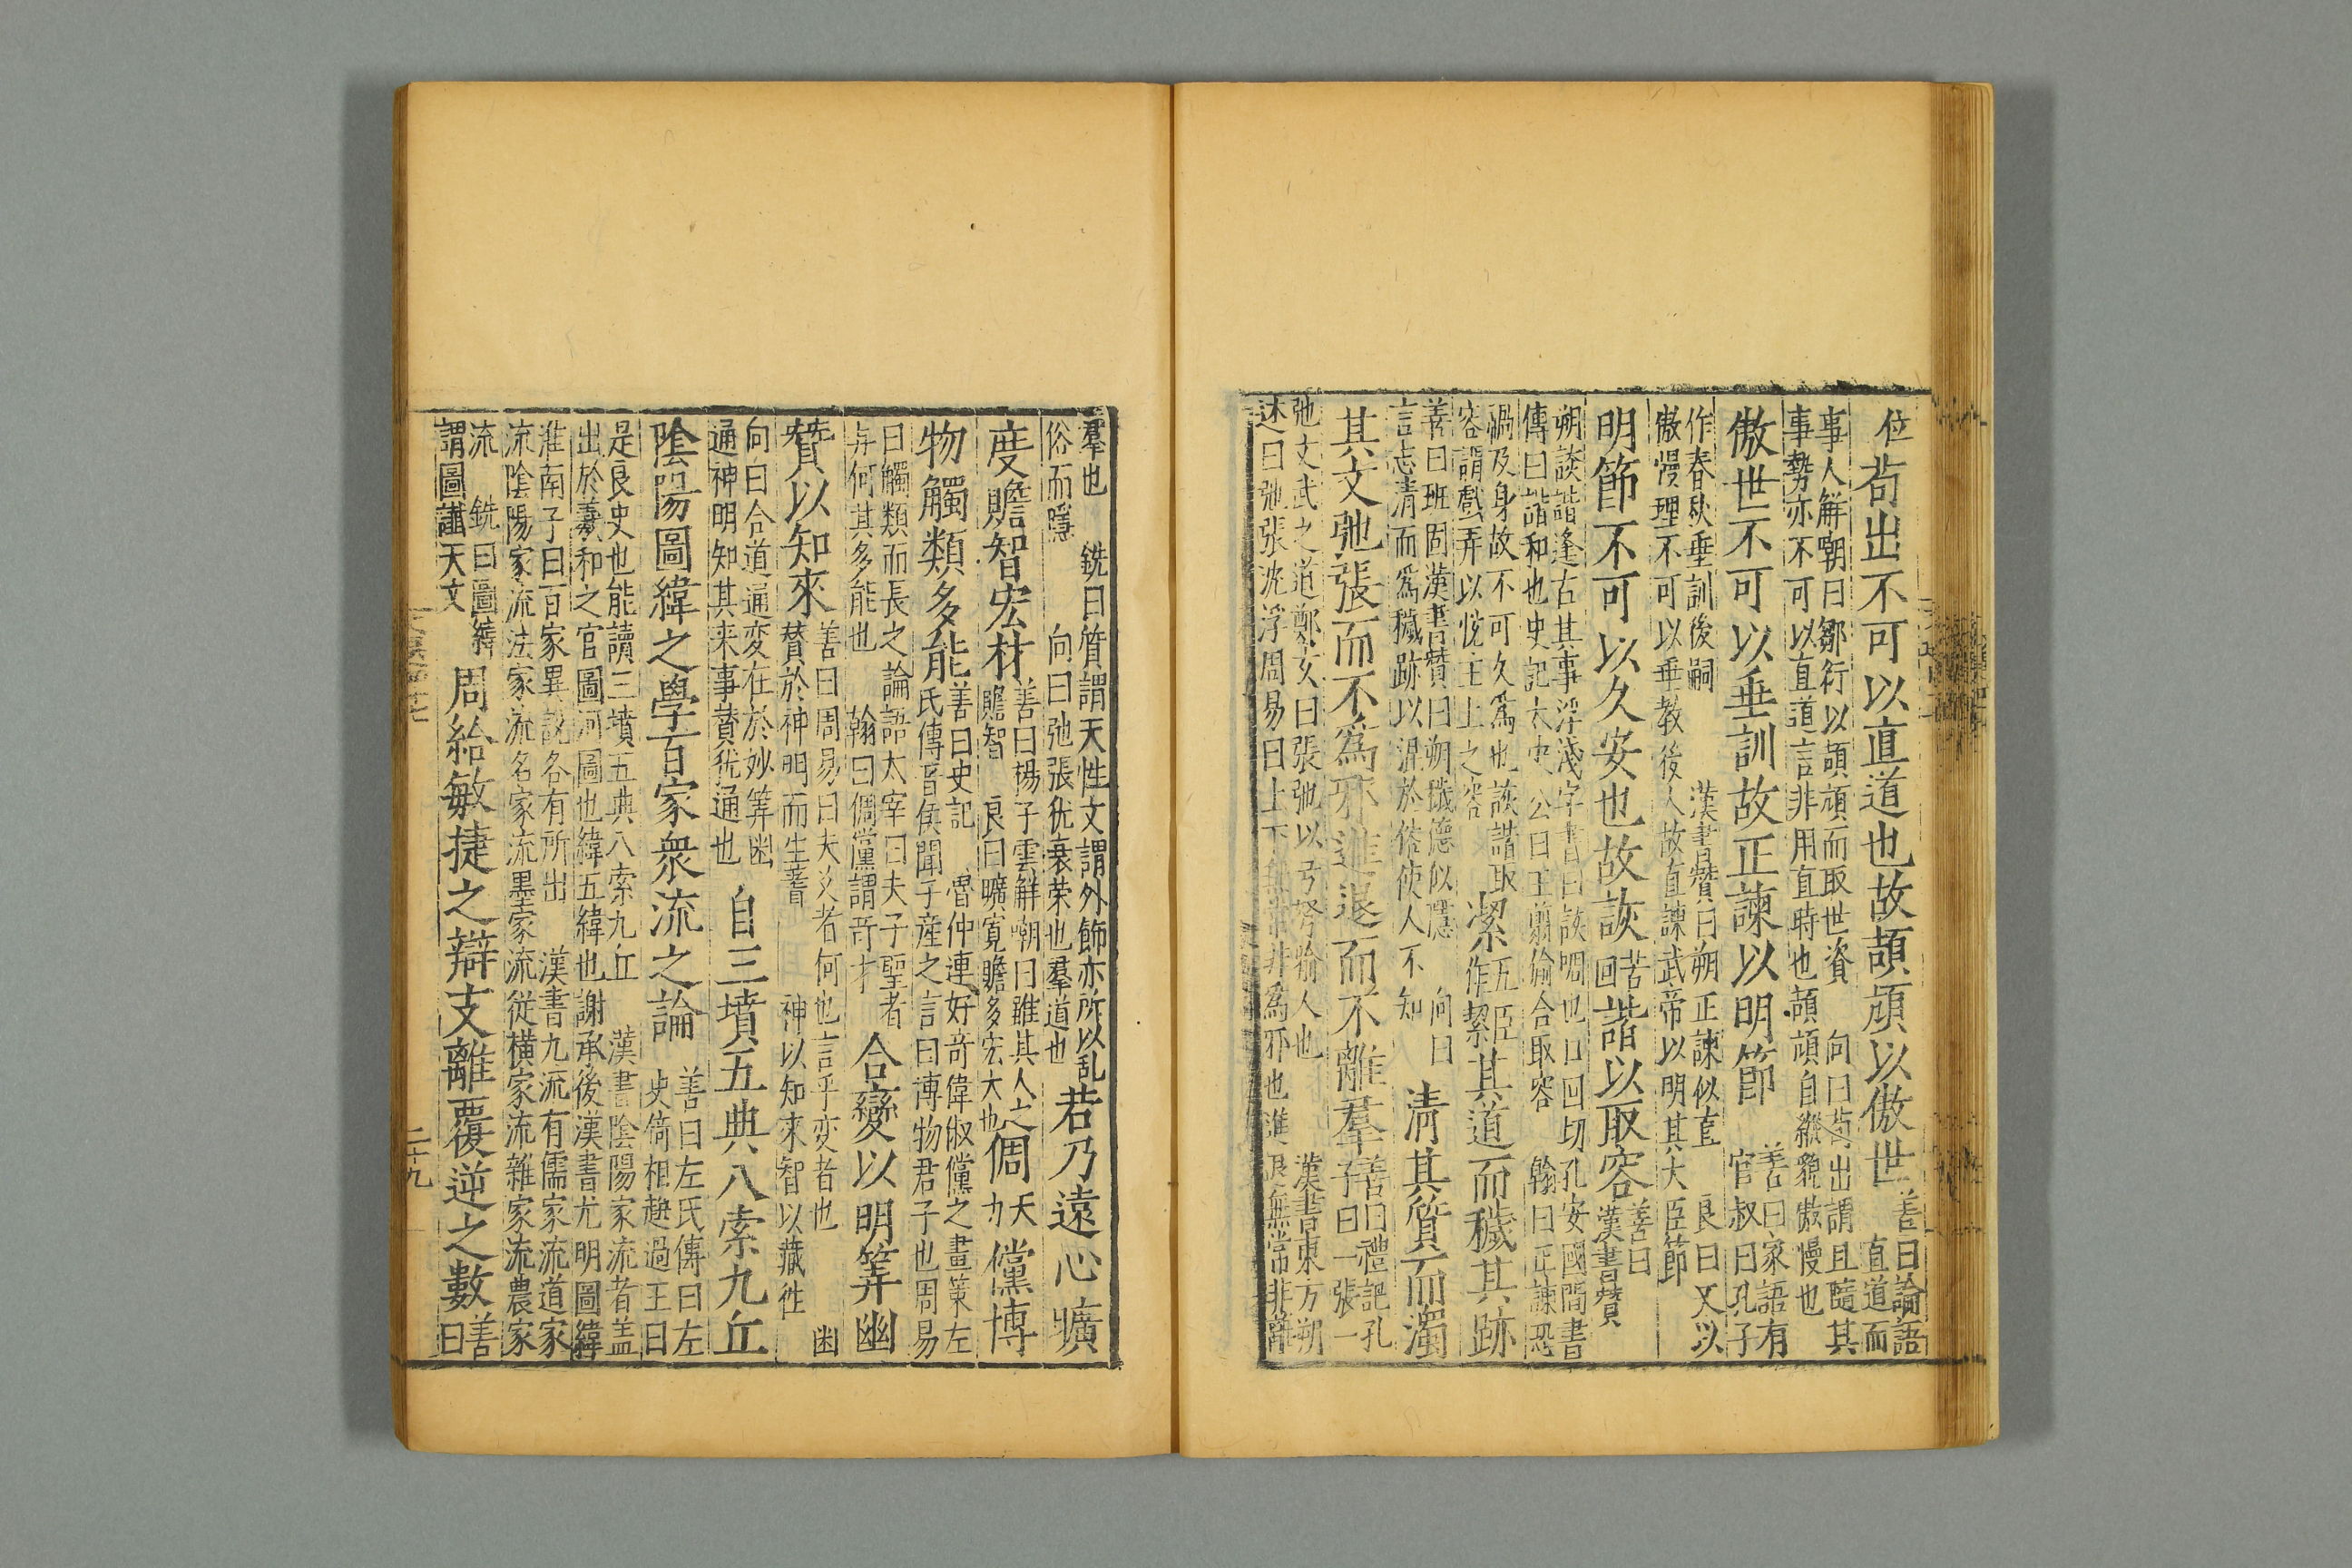 位苟出不可以直道也故頡頏以傲世善曰論語直道而
事人解嘲曰鄒衍以頡頏而取世資向曰苟出謂且隨其
事勢亦不可以直道言非用直時也頡頏自縱貌傲慢也
傲世不可以垂訓故正諫以明節善曰家語有官叔曰孔子
作春秋垂訓後嗣漢書贊曰朔正諫似直良曰又以
傲慢理不可以垂教後人故直諫武帝以明其大臣節
明節不可以久安也故詼苦回諧以取容善曰漢書贊
朔談諧逢占其事浮淺字書曰詼啁也口回切孔安國尚書
傳曰諧和也史記太史公曰王翦偷合取容翰曰正諫恐
禍及身故不可久爲也詼諧取
容謂戲弄以悅主上之容潔五臣作絜其道而穢其跡
善曰班固漢書贊曰朔穢德似隱向曰
言志清而爲穢跡以混於俗使人不知清其質而濁
其文弛張而不爲邪進退而不離羣善曰禮記孔子曰一張一
弛文武之道鄭玄曰張弛以弓弩喻人也漢書東方朔
述曰弛張沈浮周易曰上下無常非爲邪也進退無常非離
羣也銑曰質謂天性文謂外飾亦所以乱
俗而隱向曰弛張犹衰荣也羣道也若乃遠心曠
度贍智宏材善曰楊子雲解嘲曰雖其人之贍智良曰曠寛贍多宏大也倜天力儻博
物觸類多能善曰史記魯仲連好奇偉俶儻之畫策左氏傳晉侯聞子産之言曰博物君子也周易
曰觸類而長之論語太宰曰夫子聖者
与何其多能也翰曰倜儻謂奇才合變以明筭幽
贊以知來善曰周易曰夫爻者何也言乎变者也幽贊於神明而生蓍神以知來智以藏徃
向曰合道通变在於妙筭幽
通神明知其来事賛犹通也自三墳五典八索九丘
陰陽圖緯之學百家衆流之論善曰左氏傳曰左史倚相趨過王曰
是良史也能讀三墳五典八索九丘漢書陰陽家流者盖
出於羲和之官圖河圖也緯五緯也謝承後漢書尤明圖緯
淮南子曰百家異説各有所出漢書九流有儒家流道家
流陰陽家流法家流名家流墨家流從横家流雜家流農家
流銑曰圖緯
謂圖讖天文周給敏捷之辯支離覆逆之數善曰
二十九